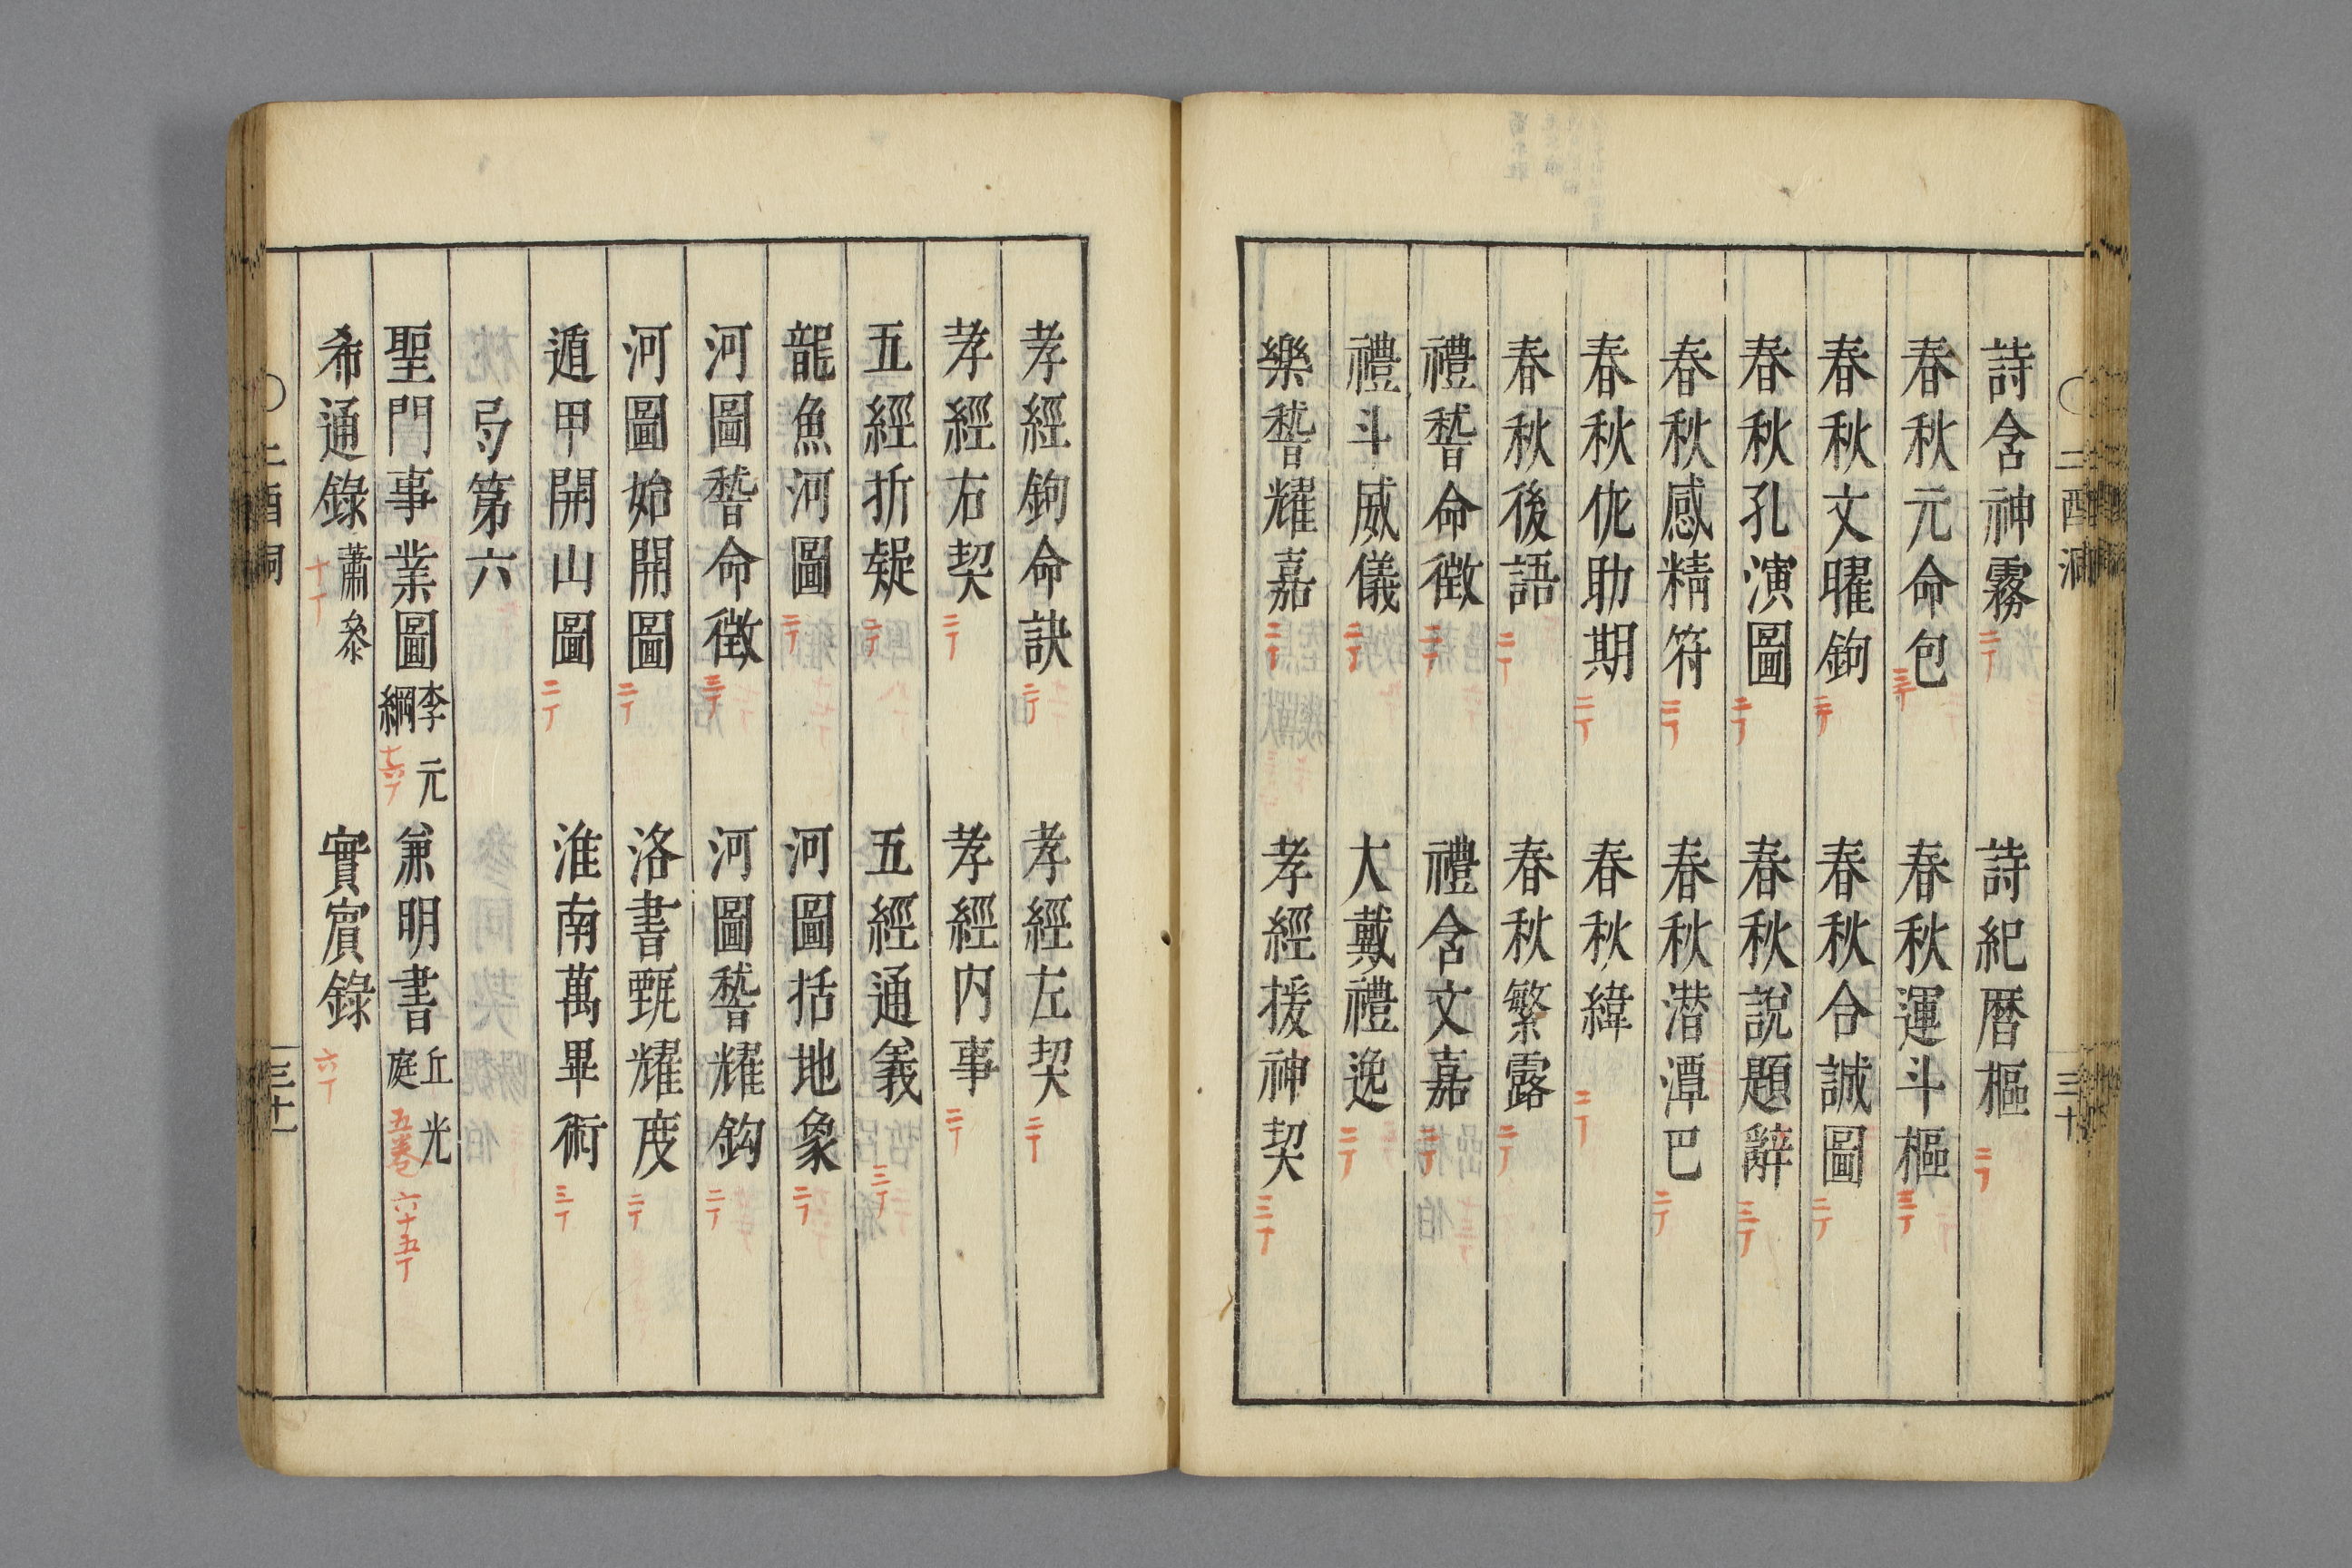 二酉洞
三十
詩含神霧 二丁 詩紀曆樞 二丁
春秋元命包 三丁 春秋運斗樞 三丁
春秋文曜鉤 二丁 春秋合誠圖 二丁
春秋孔演圖 二丁 春秋說題辭 三丁
春秋感精符 三丁 春秋潛潭巴 二丁
春秋佐助期 二丁 春秋緯 二丁
春秋後語 二丁 春秋繁露 二丁
禮嵇命徵 二丁 禮含文嘉 二丁
禮斗威儀 二丁 大戴禮逸 二丁
樂嵇耀嘉 二丁 孝經援神契 三丁
孝經鉤命訣 二丁 孝經左契 二丁
孝經右契 二丁 孝經內事 二丁
五經折疑 二丁 五經通義 三丁
龍魚河圖 二丁 河圖括地象 二丁
河圖嵇命徵 三丁 河圖嵇耀鈎 二丁
河圖始開圖 二丁 洛書甄耀度 二丁
遁甲開山圖 二丁 淮南萬畢術 三丁
弓第六
聖門事業圖 李元綱 十六丁 兼明書 丘光庭 五卷 六十五丁
希通錄 蕭參 十丁 實賔錄 六丁
二酉洞
三十一